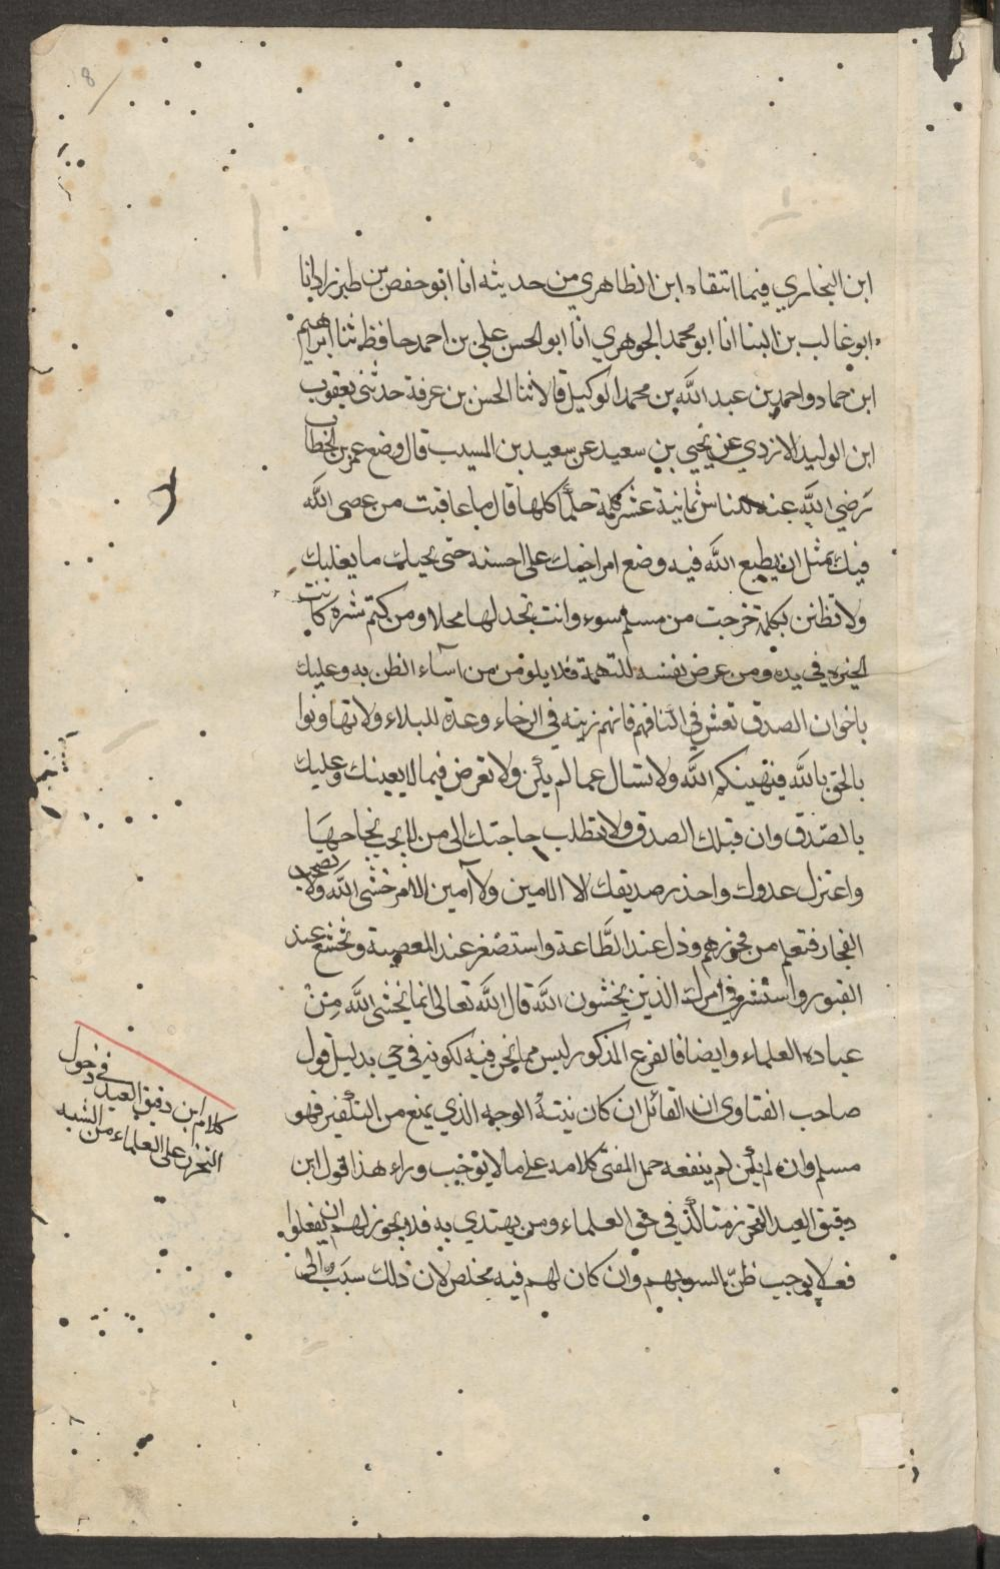 ابن البخاري فيما انتقاه ابن الظاهري من حديثه انا ابو حفص بن طبرزد انا
ابو غالب بن البنا انا ابو محمد الجوهري انا ابو الحسن علي بن احمد حافظ ثنا ابراهيم
ابن حماد واحمد بن عبد الله بن محمد الوكيل قالا ثنا الحسن بن عرفة حدثني يعقوب
ابن الوليد الازدي عن يحيى بن سعيد عن سعيد بن المسيب قال وضع عمر بن الخطاب
رَضي الله عنه للناس ثمانية عشر كلمة حكمًا كلها قال ما عاقبت من عصى الله
فيك بمثل ان يطيع الله فيه وضع امر اخيك على احسنه حتى يجيك ما يغلبك
ولا تظنن بكلمة خرجت من مسلم سوء وانت تجد لها محلا ومن كتم سره كانت
الخيره في يده ومن عرض نفسه للتهمة فلا يلومن من اساء الظن به وعليك
باخوان الصدق تعش في اكنافهم فانهم زينه في الرخاء وعدة للبلاء ولا تهاونوا
بالحق بالله فيهينكم الله ولا تسال عما لم يكن ولا تعرض فيما لا يعينك وعليك
بالصّدق وان قتلك الصدق ولا تطلب حاجتك الى من لا يحب نجاحهَا
واعتزل عدوك واحذر صديقك الا الامين ولا آمين الا من خشي الله ولا تصحب
الفجار فتعلم من فجورهم وذل عند الطَّاعة واستصْغر عند المعصية وتخشع عند
القبور واستشر في امرك الذين يخشون الله قال الله تعالى انما يخشى الله مِنْ
عباده العلماء وايضا فالفرع المذكور ليس مما نحن فيه لكونه في حي بدليل قول
صاحب الفتاوى ان القائل ان كان نيته الوجه الذي يمنع من التكفير فهو
مسلم وان لم يكن لم ينفعه حمل المفتي كلامه على ما لا يوجب وراء هذا قول ابن
دقيق العيد التحرز متاكد في حق العلماء ومن يهتدي به فلا يجوز لهم ان يفعلوا
فعلا يوجب ظنّ السو بهم وان كان لهم فيه مخلص لان ذلك سبَب الى
كلام ابن دقيق العيد في دخول
التحرز على العلماء من الشبه